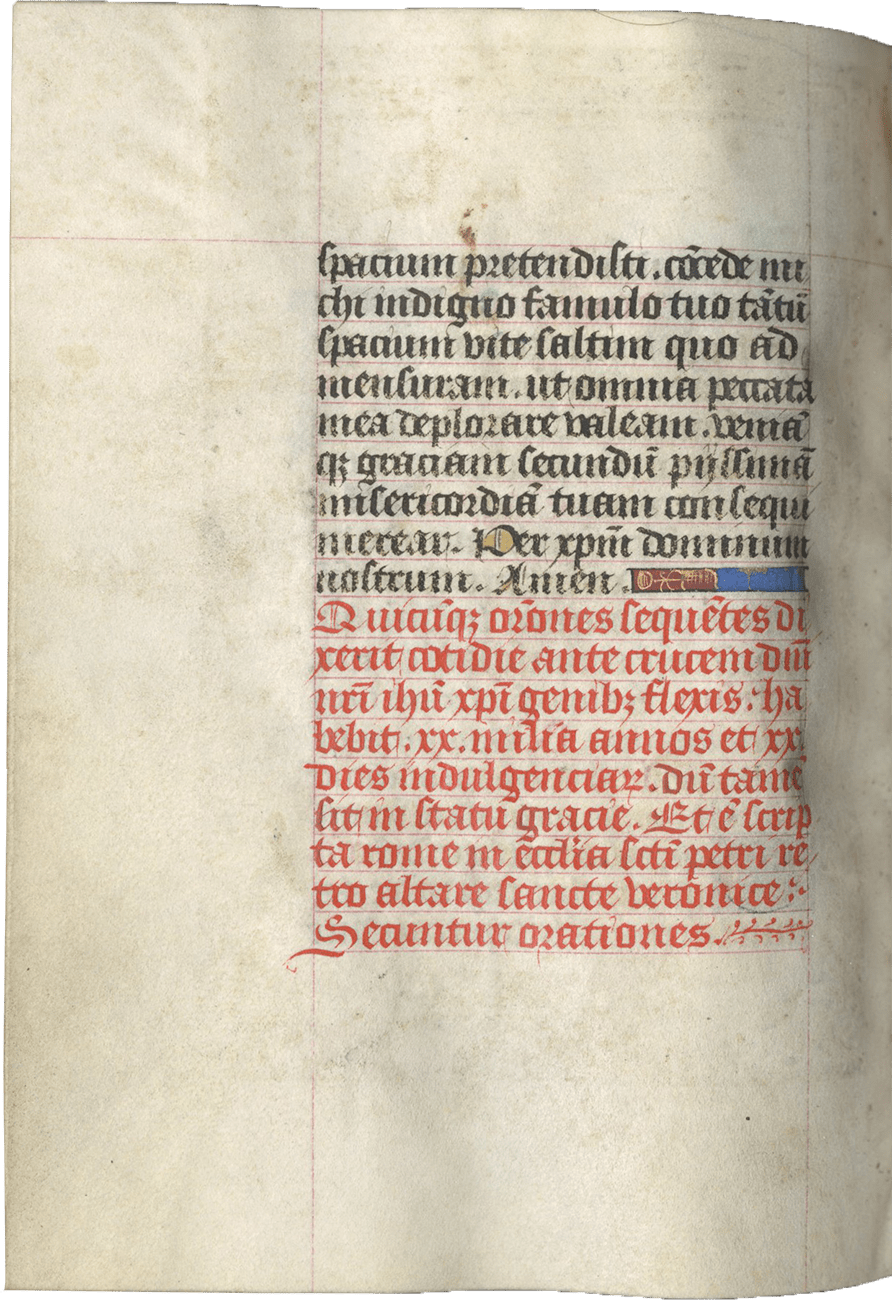 spacium pretendisti. cõcede mi
chi indigno famulo tuo tãtũ
spacium vite saltim quo ad
mensuram. ut omnia peccata
mea deplorare valeam. veniã
qꝫ graciam secundũ pijssimã
misericordiã tuam consequi
merear. Per xp̃m dominum
nostrum. Amen.
Quicũqꝫ orõnes sequẽtes di
xerit cotidie ante crucem dñi
nrĩ ihũ xpĩ genibꝫ flexis. ha
bebit. xx. milia annos et xx.
dies indulgenciaꝝ. dũ tamẽ
sit in statu gracie. Et ẽ scrip
ta rome in ecclĩa sctĩ petri re
tro altare sancte veronice :·
Secuntur orationes.